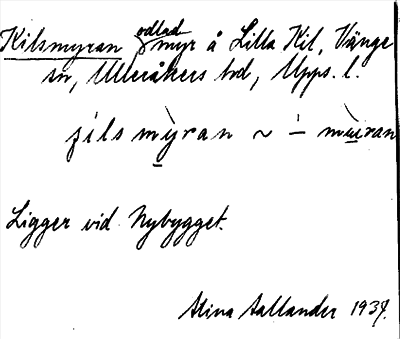 Kilsmyran odlad myr å Lilla Kil, Vänge
sn, Ulleråkers hd, Upps. l.
jíls mỳran ~ ´– mùran
Ligger vid Nybygget.
Stina Aallander 1937.